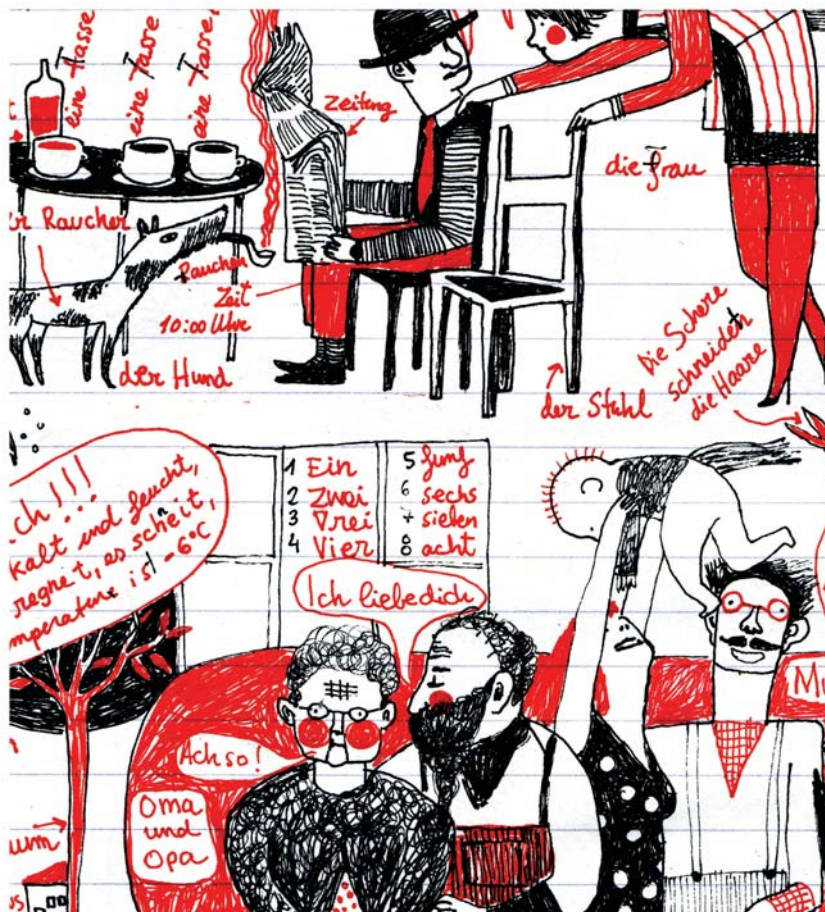 eine Tasse
eine Tasse
eine Tasse
Zeitung
die Frau
r Raucher
Rauchen
Zeit
10:00 Uhr
der Hund
der Stuhl
Die Schere
schneidet
die Haare
ch!!!
kalt und feucht,
regnet, es schneit,
mperature ist -6°C
1 Ein
2 Zwei
3 Drei
4 Vier
5 fünf
6 sechs
7 sieben
8 acht
Ich liebe dich
Ach so!
Oma
und
Opa
Mu
um
us